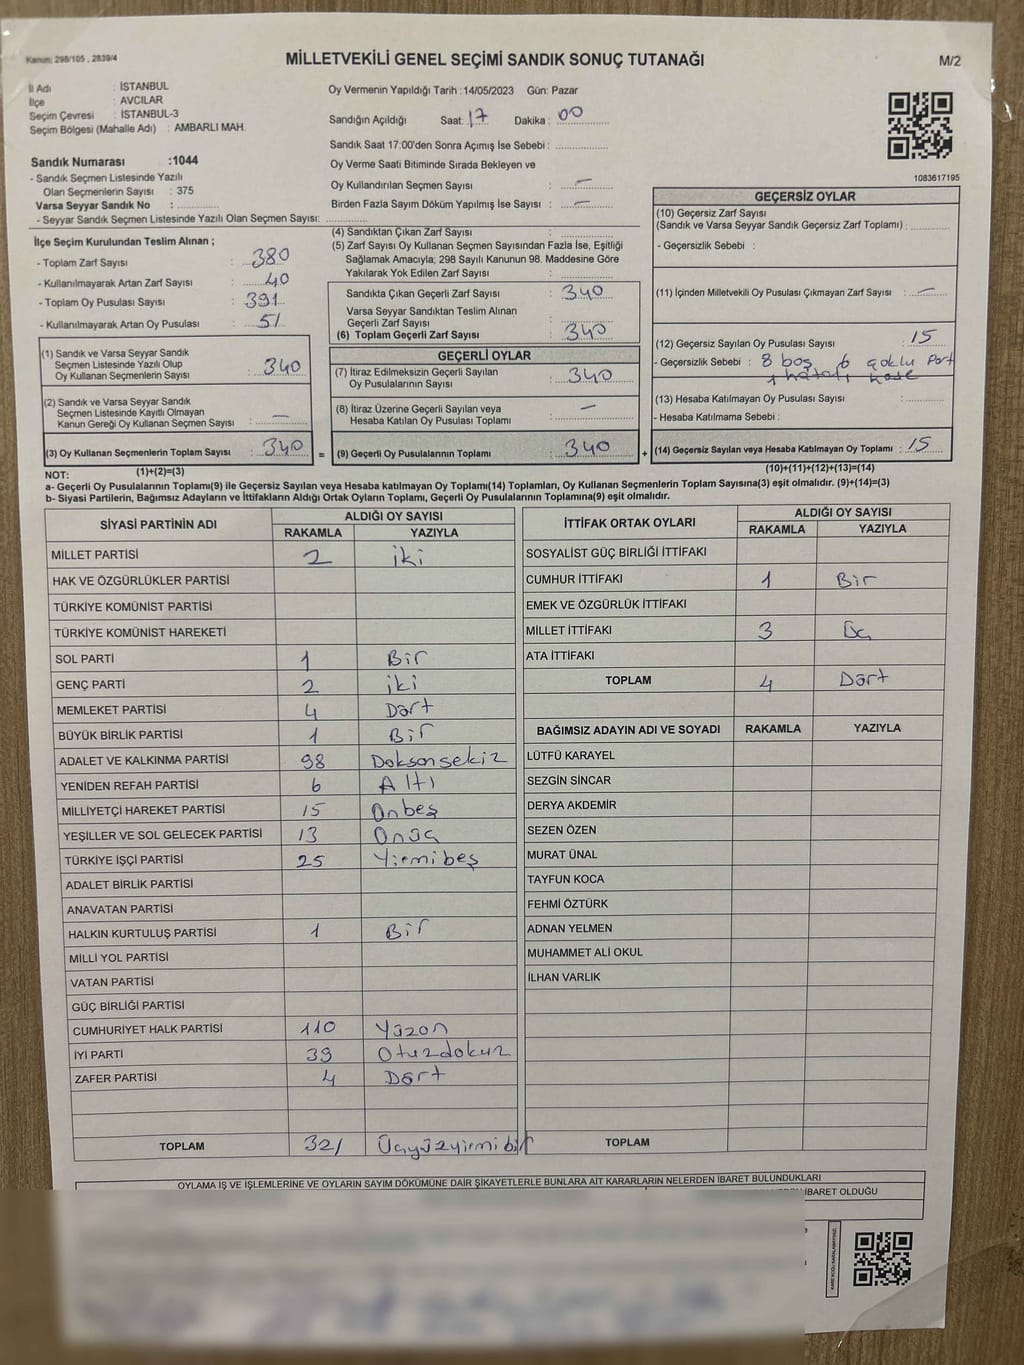 Kanun: 298/105 , 2839/4
MİLLETVEKİLİ GENEL SEÇİMİ SANDIK SONUÇ TUTANAĞI
M/2
İl Adı : İSTANBUL
İlçe : AVCILAR
Seçim Çevresi : İSTANBUL-3
Seçim Bölgesi (Mahalle Adı) : AMBARLI MAH.
Sandık Numarası :1044
- Sandık Seçmen Listesinde Yazılı
Olan Seçmenlerin Sayısı : 375
Varsa Seyyar Sandık No :
- Seyyar Sandık Seçmen Listesinde Yazılı Olan Seçmen Sayısı:
Oy Vermenin Yapıldığı Tarih :14/05/2023 Gün: Pazar
Sandığın Açıldığı Saat: 17 Dakika : 00
Sandık Saat 17:00'den Sonra Açımış İse Sebebi :
Oy Verme Saati Bitiminde Sırada Bekleyen ve
Oy Kullandırılan Seçmen Sayısı : —
Birden Fazla Sayım Döküm Yapılmış İse Sayısı : —
1083617195
İlçe Seçim Kurulundan Teslim Alınan ;
- Toplam Zarf Sayısı : 380
- Kullanılmayarak Artan Zarf Sayısı : 40
- Toplam Oy Pusulası Sayısı : 391
- Kullanılmayarak Artan Oy Pusulası : 51
(1) Sandık ve Varsa Seyyar Sandık
Seçmen Listesinde Yazılı Olup
Oy Kullanan Seçmenlerin Sayısı : 340
(2) Sandık ve Varsa Seyyar Sandık
Seçmen Listesinde Kayıtlı Olmayan
Kanun Gereği Oy Kullanan Seçmen Sayısı : —
(3) Oy Kullanan Seçmenlerin Toplam Sayısı : 340
(4) Sandıktan Çıkan Zarf Sayısı :
(5) Zarf Sayısı Oy Kullanan Seçmen Sayısından Fazla İse, Eşitliği
Sağlamak Amacıyla; 298 Sayılı Kanunun 98. Maddesine Göre
Yakılarak Yok Edilen Zarf Sayısı :
Sandıkta Çıkan Geçerli Zarf Sayısı : 340
Varsa Seyyar Sandıktan Teslim Alınan
Geçerli Zarf Sayısı :
(6) Toplam Geçerli Zarf Sayısı : 340
GEÇERLİ OYLAR
(7) İtiraz Edilmeksizin Geçerli Sayılan
Oy Pusulalarının Sayısı : 340
(8) İtiraz Üzerine Geçerli Sayılan veya
Hesaba Katılan Oy Pusulası Toplamı : —
= (9) Geçerli Oy Pusulalarının Toplamı : 340 +
GEÇERSİZ OYLAR
(10) Geçersiz Zarf Sayısı
(Sandık ve Varsa Seyyar Sandık Geçersiz Zarf Toplamı) :
- Geçersizlik Sebebi :
(11) İçinden Milletvekili Oy Pusulası Çıkmayan Zarf Sayısı : —
(12) Geçersiz Sayılan Oy Pusulası Sayısı : 15
- Geçersizlik Sebebi : 8 boş 6 çoklu Part
1 hatalı kase
(13) Hesaba Katılmayan Oy Pusulası Sayısı :
- Hesaba Katılmama Sebebi :
(14) Geçersiz Sayılan veya Hesaba Katılmayan Oy Toplamı : 15
NOT: (1)+(2)=(3)
(10)+(11)+(12)+(13)=(14)
a- Geçerli Oy Pusulalarının Toplamı(9) ile Geçersiz Sayılan veya Hesaba katılmayan Oy Toplamı(14) Toplamları, Oy Kullanan Seçmenlerin Toplam Sayısına(3) eşit olmalıdır. (9)+(14)=(3)
b- Siyasi Partilerin, Bağımsız Adayların ve İttifakların Aldığı Ortak Oyların Toplamı, Geçerli Oy Pusulalarının Toplamına(9) eşit olmalıdır.
SİYASİ PARTİNİN ADI ALDIĞI OY SAYISI
RAKAMLA YAZIYLA
MİLLET PARTİSİ 2 iki
HAK VE ÖZGÜRLÜKLER PARTİSİ
TÜRKİYE KOMÜNİST PARTİSİ
TÜRKİYE KOMÜNİST HAREKETİ
SOL PARTİ 1 Bir
GENÇ PARTİ 2 iki
MEMLEKET PARTİSİ 4 Dört
BÜYÜK BİRLİK PARTİSİ 1 Bir
ADALET VE KALKINMA PARTİSİ 98 Doksonsekiz
YENİDEN REFAH PARTİSİ 6 Altı
MİLLİYETÇİ HAREKET PARTİSİ 15 Onbeş
YEŞİLLER VE SOL GELECEK PARTİSİ 13 Onüç
TÜRKİYE İŞÇİ PARTİSİ 25 Yirmibeş
ADALET BİRLİK PARTİSİ
ANAVATAN PARTİSİ
HALKIN KURTULUŞ PARTİSİ 1 Bir
MİLLİ YOL PARTİSİ
VATAN PARTİSİ
GÜÇ BİRLİĞİ PARTİSİ
CUMHURİYET HALK PARTİSİ 110 Yüzon
İYİ PARTİ 39 Otuzdokuz
ZAFER PARTİSİ 4 Dört
TOPLAM 321 Üçyüzyirmibir
İTTİFAK ORTAK OYLARI ALDIĞI OY SAYISI
RAKAMLA YAZIYLA
SOSYALİST GÜÇ BİRLİĞİ İTTİFAKI
CUMHUR İTTİFAKI 1 Bir
EMEK VE ÖZGÜRLÜK İTTİFAKI
MİLLET İTTİFAKI 3 Üç
ATA İTTİFAKI
TOPLAM 4 Dört
BAĞIMSIZ ADAYIN ADI VE SOYADI RAKAMLA YAZIYLA
LÜTFÜ KARAYEL
SEZGİN SİNCAR
DERYA AKDEMİR
SEZEN ÖZEN
MURAT ÜNAL
TAYFUN KOCA
FEHMİ ÖZTÜRK
ADNAN YELMEN
MUHAMMET ALİ OKUL
İLHAN VARLIK
TOPLAM
OYLAMA İŞ VE İŞLEMLERİNE VE OYLARIN SAYIM DÖKÜMÜNE DAİR ŞİKAYETLERLE BUNLARA AİT KARARLARIN NELERDEN İBARET BULUNDUKLARI
İBARET OLDUĞU